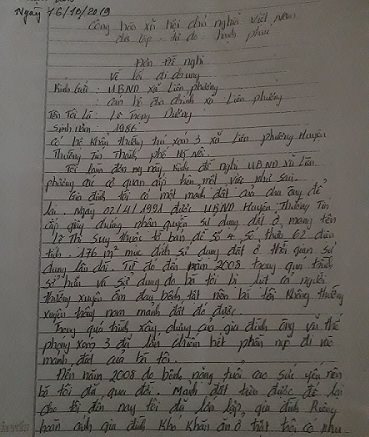 Ngày 16/10/2019
Cộng hòa xã hội chủ nghĩa Việt Nam
Độc lập - tự do - hạnh phúc
Đơn Đề nghị
Về lối đi
Kính gửi : UBND xã Liên phương
: cán bộ địa chính xã Liên phương
Tên Tôi là : Lê Trọng Dưỡng
Sinh năm 1986
có hộ khẩu thường trú xóm 3 xã Liên phương Huyện
Thường Tín Thành phố Hà Nội.
Tôi làm đơn này kính đề nghị UBND xã Liên
phương và cơ quan cấp trên một việc như sau.
Gia đình tôi có một mảnh đất của cha ông để
lại. Ngày 02/4/1991 được UBND Huyện Thường Tín
cấp giấy chứng nhận quyền sử dụng đất ở mang tên
Lê Thị Suy thuộc tờ bản đồ số 4 số thửa 62 diện
tích. 176 m² mục đích sử dụng đất ở thời gian sử
dụng lâu dài. Từ đó đến năm 2008 trong quá trình
sở hữu và sử dụng do bố tôi là người
thường xuyên ốm đau bệnh tật nên bố tôi không thường
xuyên trông nom mảnh đất đó được.
Trong quá trình xây dựng của gia đình ông vũ thế
phong xóm 3 đã lấn chiếm hết phần ngõ đi vào
mảnh đất của bố tôi.
Đến năm 2008 do bệnh nặng tuổi cao sức yếu nên
bố tôi đã qua đời. Mảnh đất trên được để lại
cho tôi đến nay tôi đã lớn lập gia đình Riêng
hoàn cảnh gia đình khó khăn ăn ở chật chội có